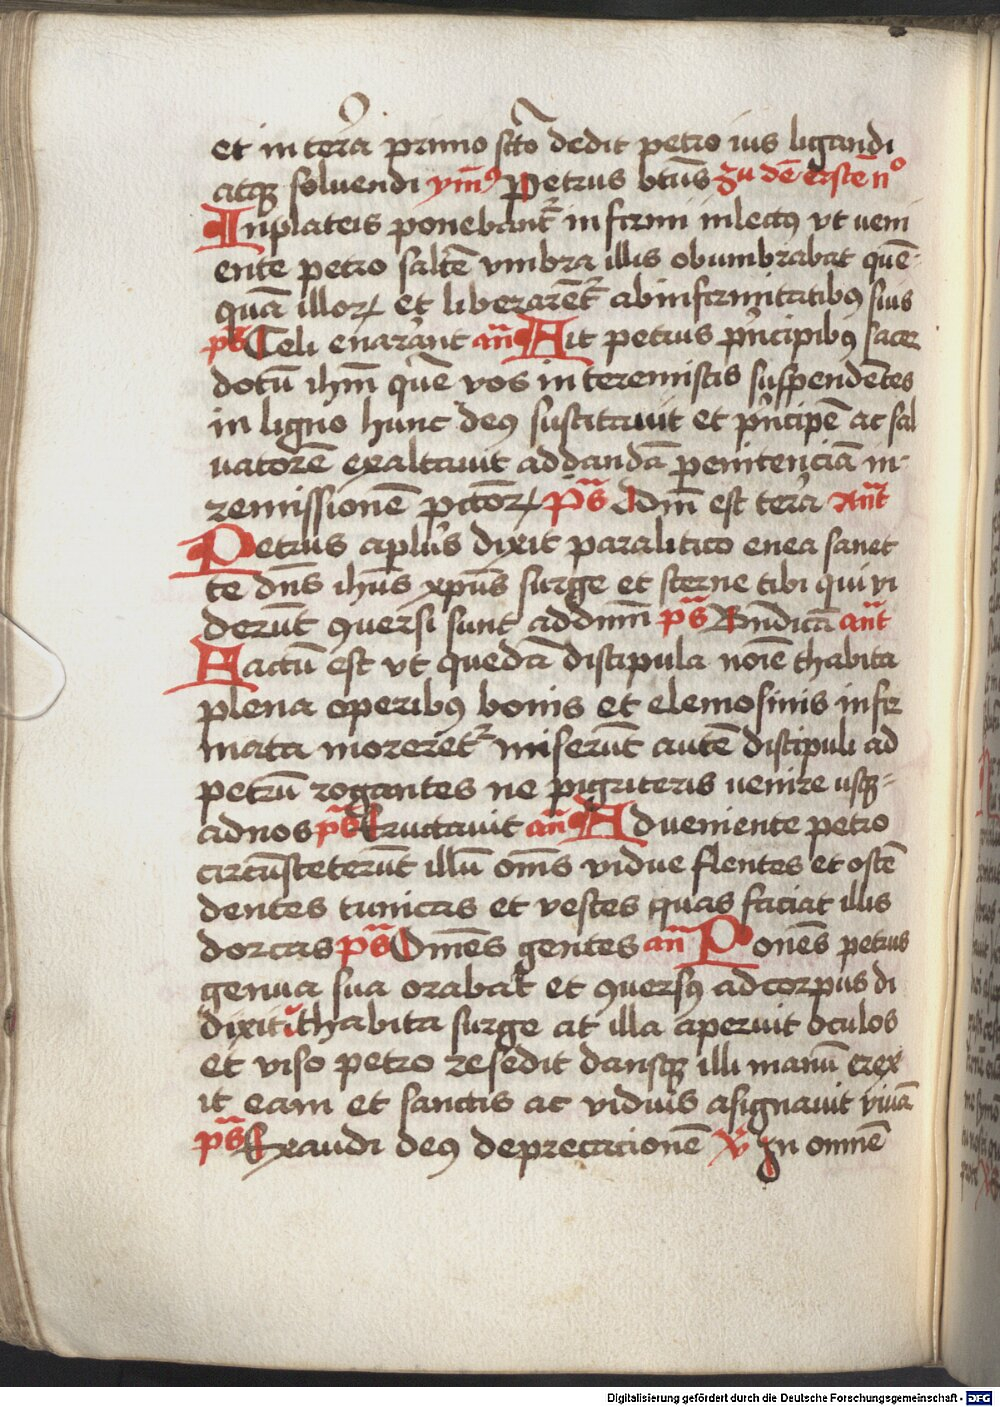 et in tera primo scto dedit petro ius ligandi
atqꝫ soluendi ymꝯ Petrus btūs zu dē erstē n°
Inplateis ponebant᷑ in firmi inlectꝯ vt ueni
ente petro saltē vmbra illis obumbrabat quē-
quā illoꝝ et liberarēt᷑ abinfirmitatibꝯ suis
ps̄ Celi enarānt an̄ Ait petrus pͥncipibꝯ sacer
dotū ihm̄ quē vos in teremistis suspendētes
in ligno hunc deꝯ suscitauit et pͥncipē ac sal
uatorē exaltauit addandā penitenciā in-
remissionē pctōꝝ ps̄ Dn̄i est tera Ant̄
Petrus aplūs dixit paralitico enea sanet
te dn̄s ihūs xpūs surge et sterne tibi qui vi
derūt ꝯuersi sunt addnm̄ ps̄ Bn̄dicā ant̄
Factū est vt quedā discipula noīe thabita
plena operibꝯ bonis et elemosinis in fir
mata moreret᷑ miserūt autē discipuli ad
petrū rogantes ne pigriteris uenire usqꝫ-
adnos ps̄ Eructauit an̄ Adueniente petro
circūsteterūt illū om̄s vidue flentes et ostē
dentes tunicas et vestes quas faciat illis
dorcas ps̄ Omēs gentes an̄ Ponēs petrus
genua sua orabat et ꝯuersꝯ adcorpus di
dixit thabita surge at illa aperuit oculos
et viso petro resedit dansqꝫ illi manū erex
it eam et sanctis ac viduis asignauit viuā
ps̄ Exaudi deꝯ deprecationē V In omnē
Digitalisierung gefördert durch die Deutsche Forschungsgemeinschaft - DFG